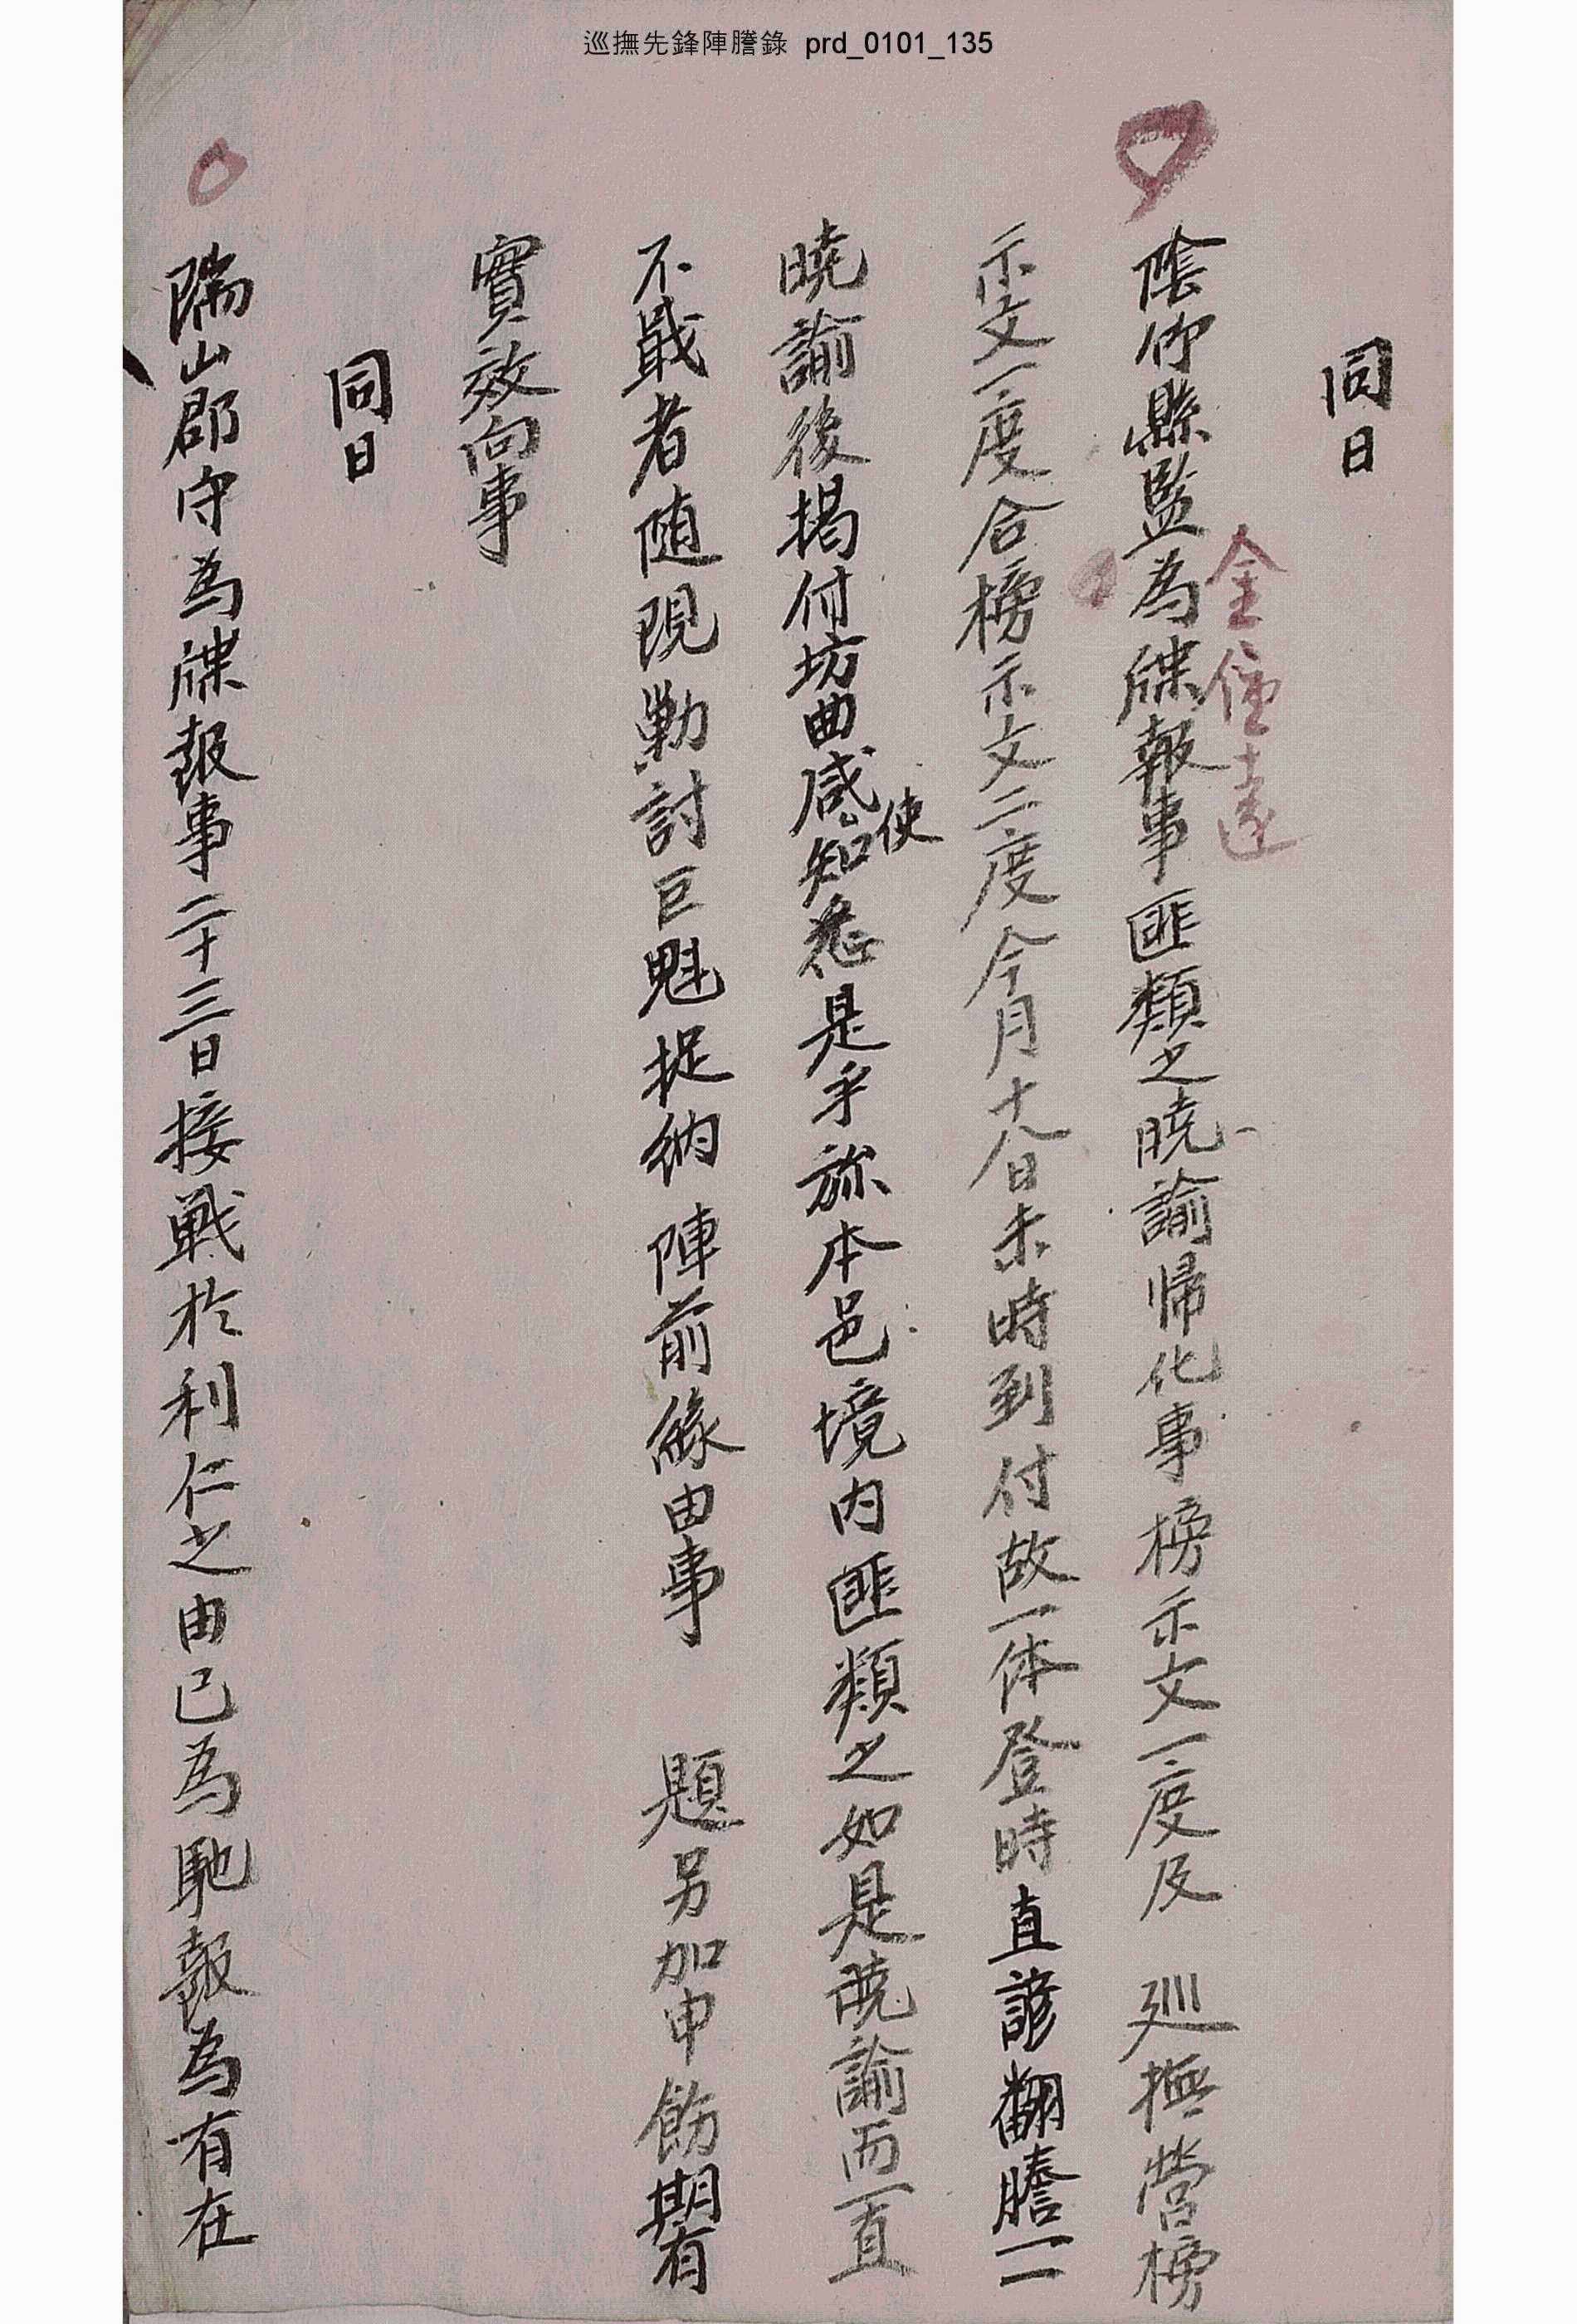 巡撫先鋒陣謄錄 prd_0101_135
同日
陰竹縣監為牒報事匪類之曉諭帰化事榜示文一度及 廵撫營榜
示文一度合榜示文二度今月十八日未時到付故一体登時直諺翻謄一一
曉諭後揭付坊曲使咸知悉是乎旀本邑境內匪類之如是曉諭而一直
不戢者随現勦討巨魁捉納 陣前緣由事 題另加申飭期有
實效向事
同日
瑞山郡守為牒報事二十三日接戰於利仁之由已為馳報為有在